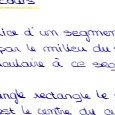 cours
ice d'un segment
par le milieu du
culaire à ce seg
ngle rectangle le
est le centre du